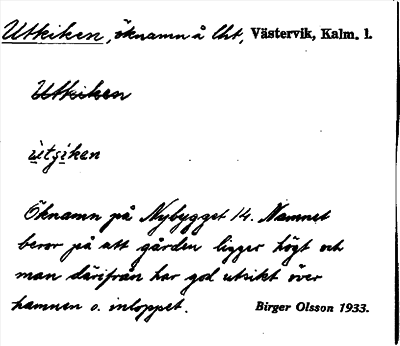 Utkiken, öknamn å lht, Västervik, Kalm. l.
Utkiken
ùtꞩiken
Öknamn på Nybygget 14. Namnet
beror på att gården ligger högt och
man därifrån har god utsikt över
hamnen o. inloppet.
Birger Olsson 1933.